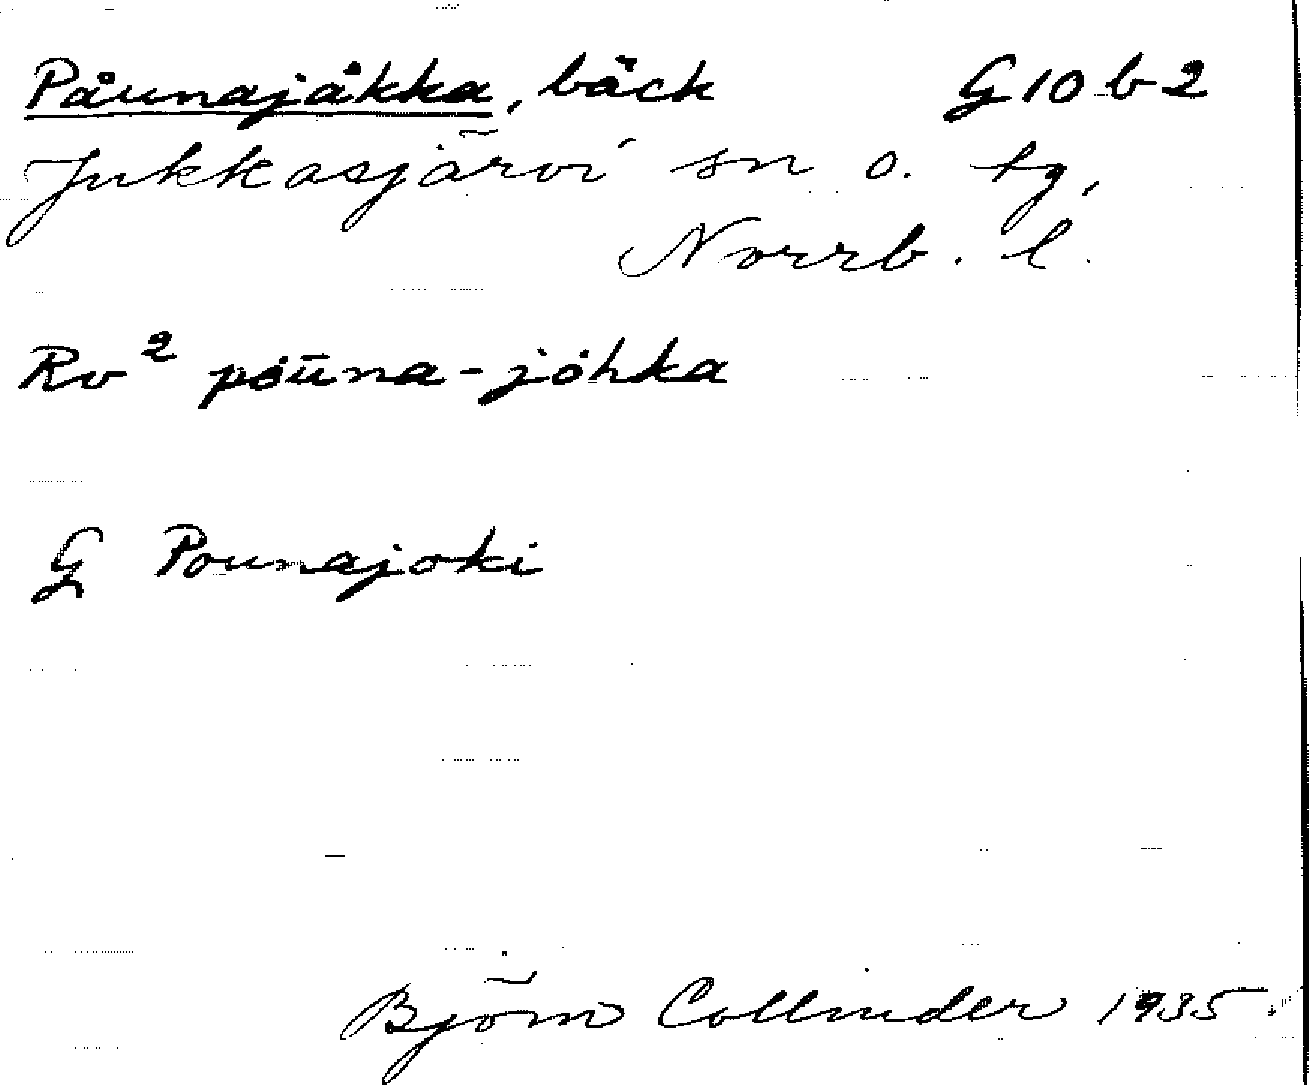 Påunajåkka, bäck G 10 b 2
Jukkasjärvi sn o. tg,
Norrb. l.
Rv² pȯūna-jȯhka
G Pounajoki
Björn Collinder 1935.